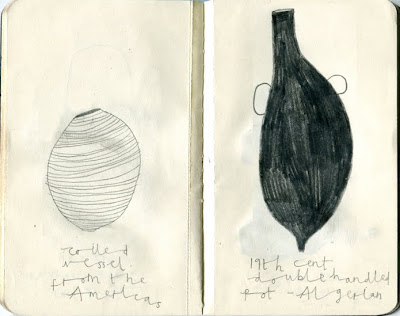 coiled
vessel
from the
Americas
19th cent
double handled
pot - Algerian